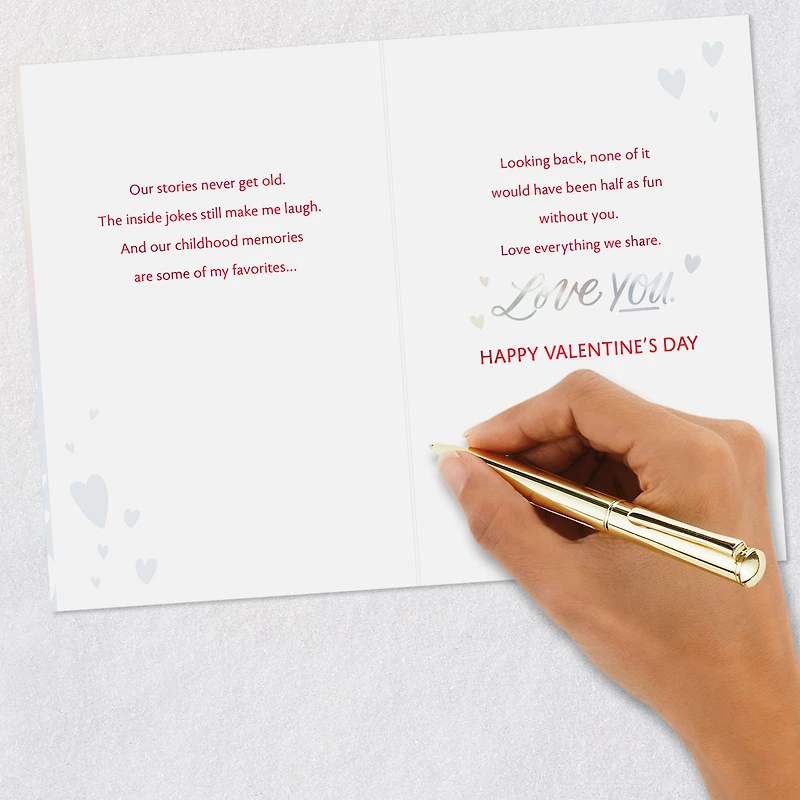 Our stories never get old.
The inside jokes still make me laugh.
And our childhood memories
are some of my favorites...
Looking back, none of it
would have been half as fun
without you.
Love everything we share.
Love you.
HAPPY VALENTINE'S DAY